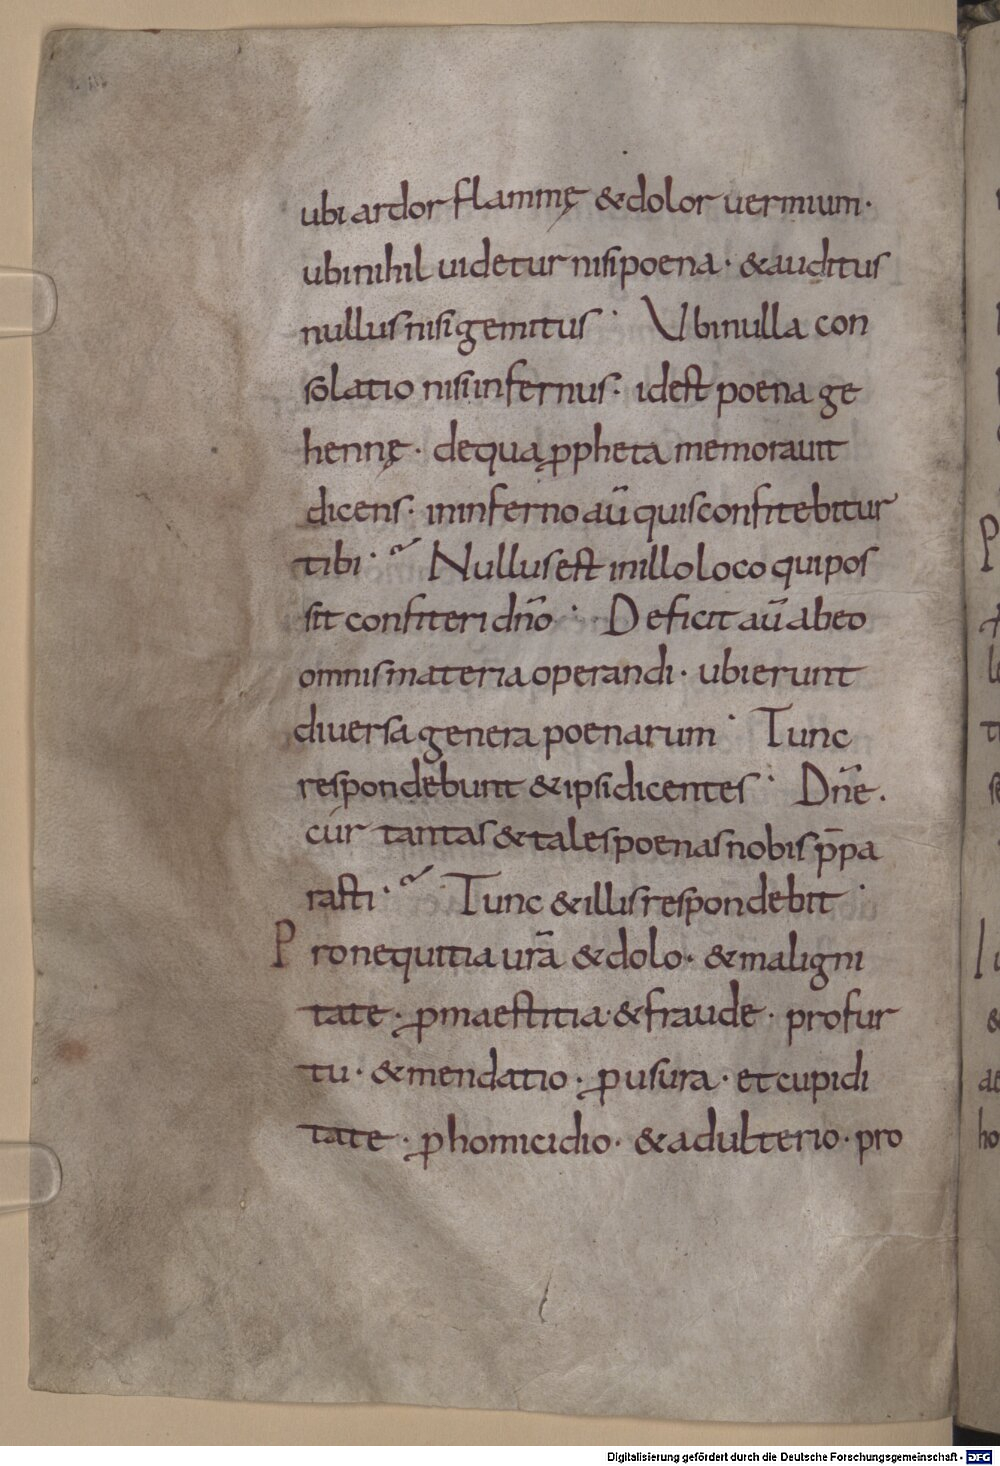 ubi ardor flammę & dolor uermium·
ubi nihil uidetur nisi poena· & auditus
nullus nisi gemitus· Ubi nulla con
solatio nisi infernus· id est poena ge
hennę· de qua ꝓpheta memorauit
dicens· in inferno aū quis confitebitur
tibi·? Nullus est in illo loco qui pos
sit confiteri dn̄o· Deficit aū ab eo
omnis materia operandi· ubi erunt
diuersa genera poenarum· Tunc
respondebunt & ipsi dicentes· Dn̄e·
cur tantas & tales poenas nobis p̄pa
rasti·? Tunc & illis respondebit·
Pro nequitia urā & dolo· & maligni
tate· ꝓ maestitia· & fraude· pro fur
tu· & mendatio· ꝓ usura· et cupidi
tate· ꝓ homicidio· & adulterio· pro
Digitalisierung gefördert durch die Deutsche Forschungsgemeinschaft - DFG